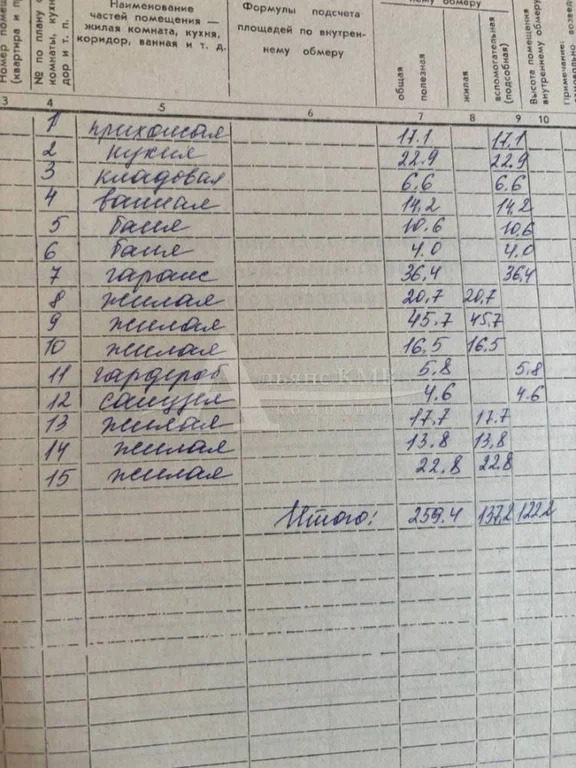 Номер помещ
(квартира и п
№ по плану
комнаты, кухн
дор и т. п.
Наименование
частей помещения —
жилая комната, кухня,
коридор, ванная и т. д.
Формулы подсчета
площадей по внутрен-
нему обмеру
нему обмеру
общая
полезная
жилая
вспомогательная
(подсобная)
Высота помещения
внутреннему обмеру
Примечание:
возвед
3 4 5 6 7 8 9 10
1 прихожая 17.1 17.1
2 кухня 22.9 22.9
3 кладовая 6.6 6.6
4 ванная 14.2 14,2
5 баня 10.6 10,6
6 баня 4.0 4.0
7 гараж 36,4 36,4
8 жилая 20,7 20,7
9 жилая 45.7 45.7
10 жилая 16,5 16,5
11 гардероб 5,8 5,8
12 санузел 4.6 4.6
13 жилая 17,7 17.7
14 жилая 13.8 13,8
15 жилая 22.8 22.8
Итого: 259.4 137,2 122.2
Альянс КМК